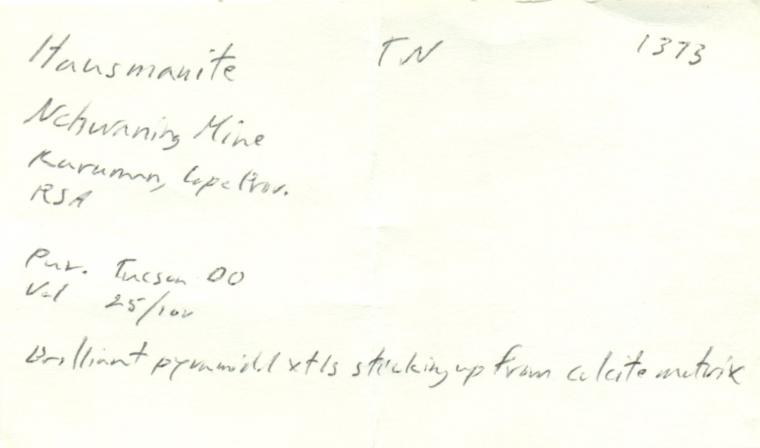 Hausmanite TN 1373
Nchwaning Mine
Kuruman, Cape Prov.
RSA
Pur. Tucson 00
Val 25/100
Brilliant pyramidl xtls sticking up from calcite matrix